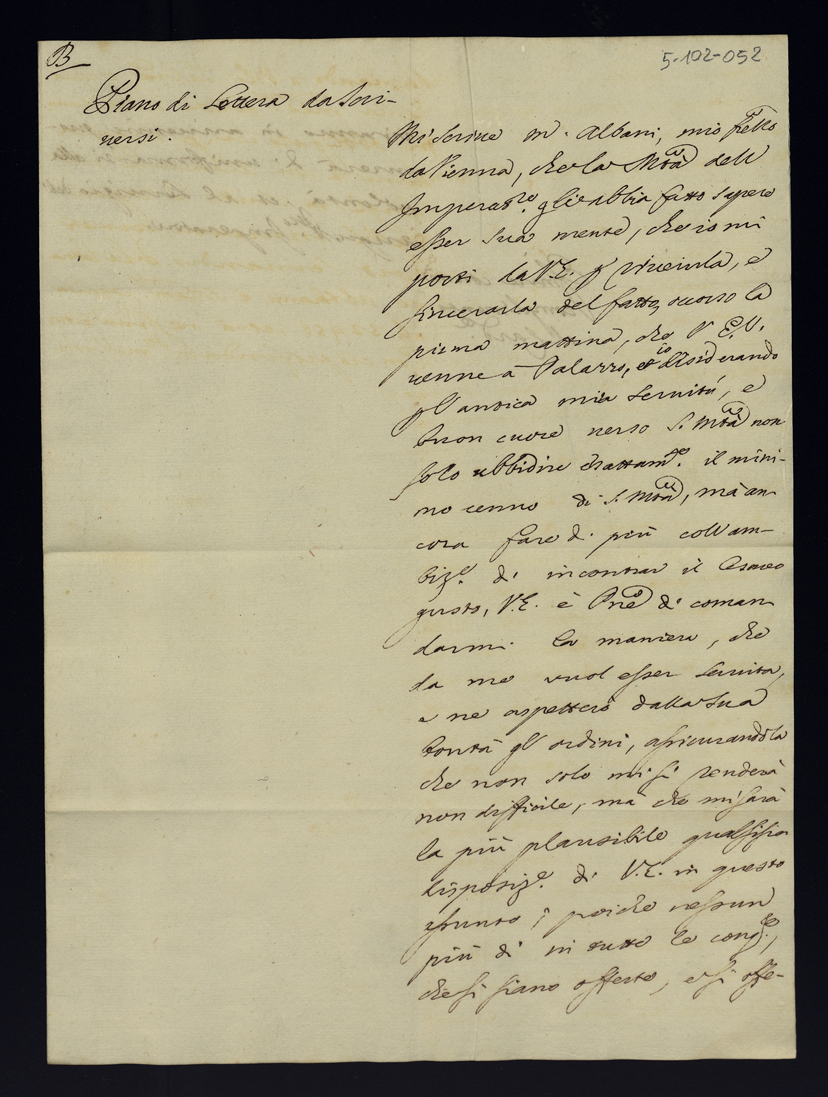 B
5-102-052
Piano di Lettera da Scri-
versi.
Mi scrive M.r Albani, mio fretto
da Vienna, che la Mtà dell
Imperat.re gli abbia fatto sapere
esser sua mente, che io mi
porti da V.E. p riverirla, e
sincerarla del fatto, scorso la
prima mattina, che V.E.
venne à Palazzo, et io desiderando
p l'antica mia servitù, e
buon cuore verso S. Mtà non
solo ubbidire esattam.e il mini-
mo cenno di S. Mtà, mà an-
cora fare di più coll'am-
biz.e di incontrar il Cesareo
gusto, V.E. è Pne di coman
darmi la maniera, che
da me vuol esser servita,
e ne aspetterò dalla sua
bontà gl'ordini, assicurandola
che non solo mi si renderà
non difficile, mà che mi sarà
la più plausibile qualsisia
disposiz.e di V.E. in questo
assunto; poiche nessun
più di in tutte le cong.e,
che si siano offerte, e si offe-